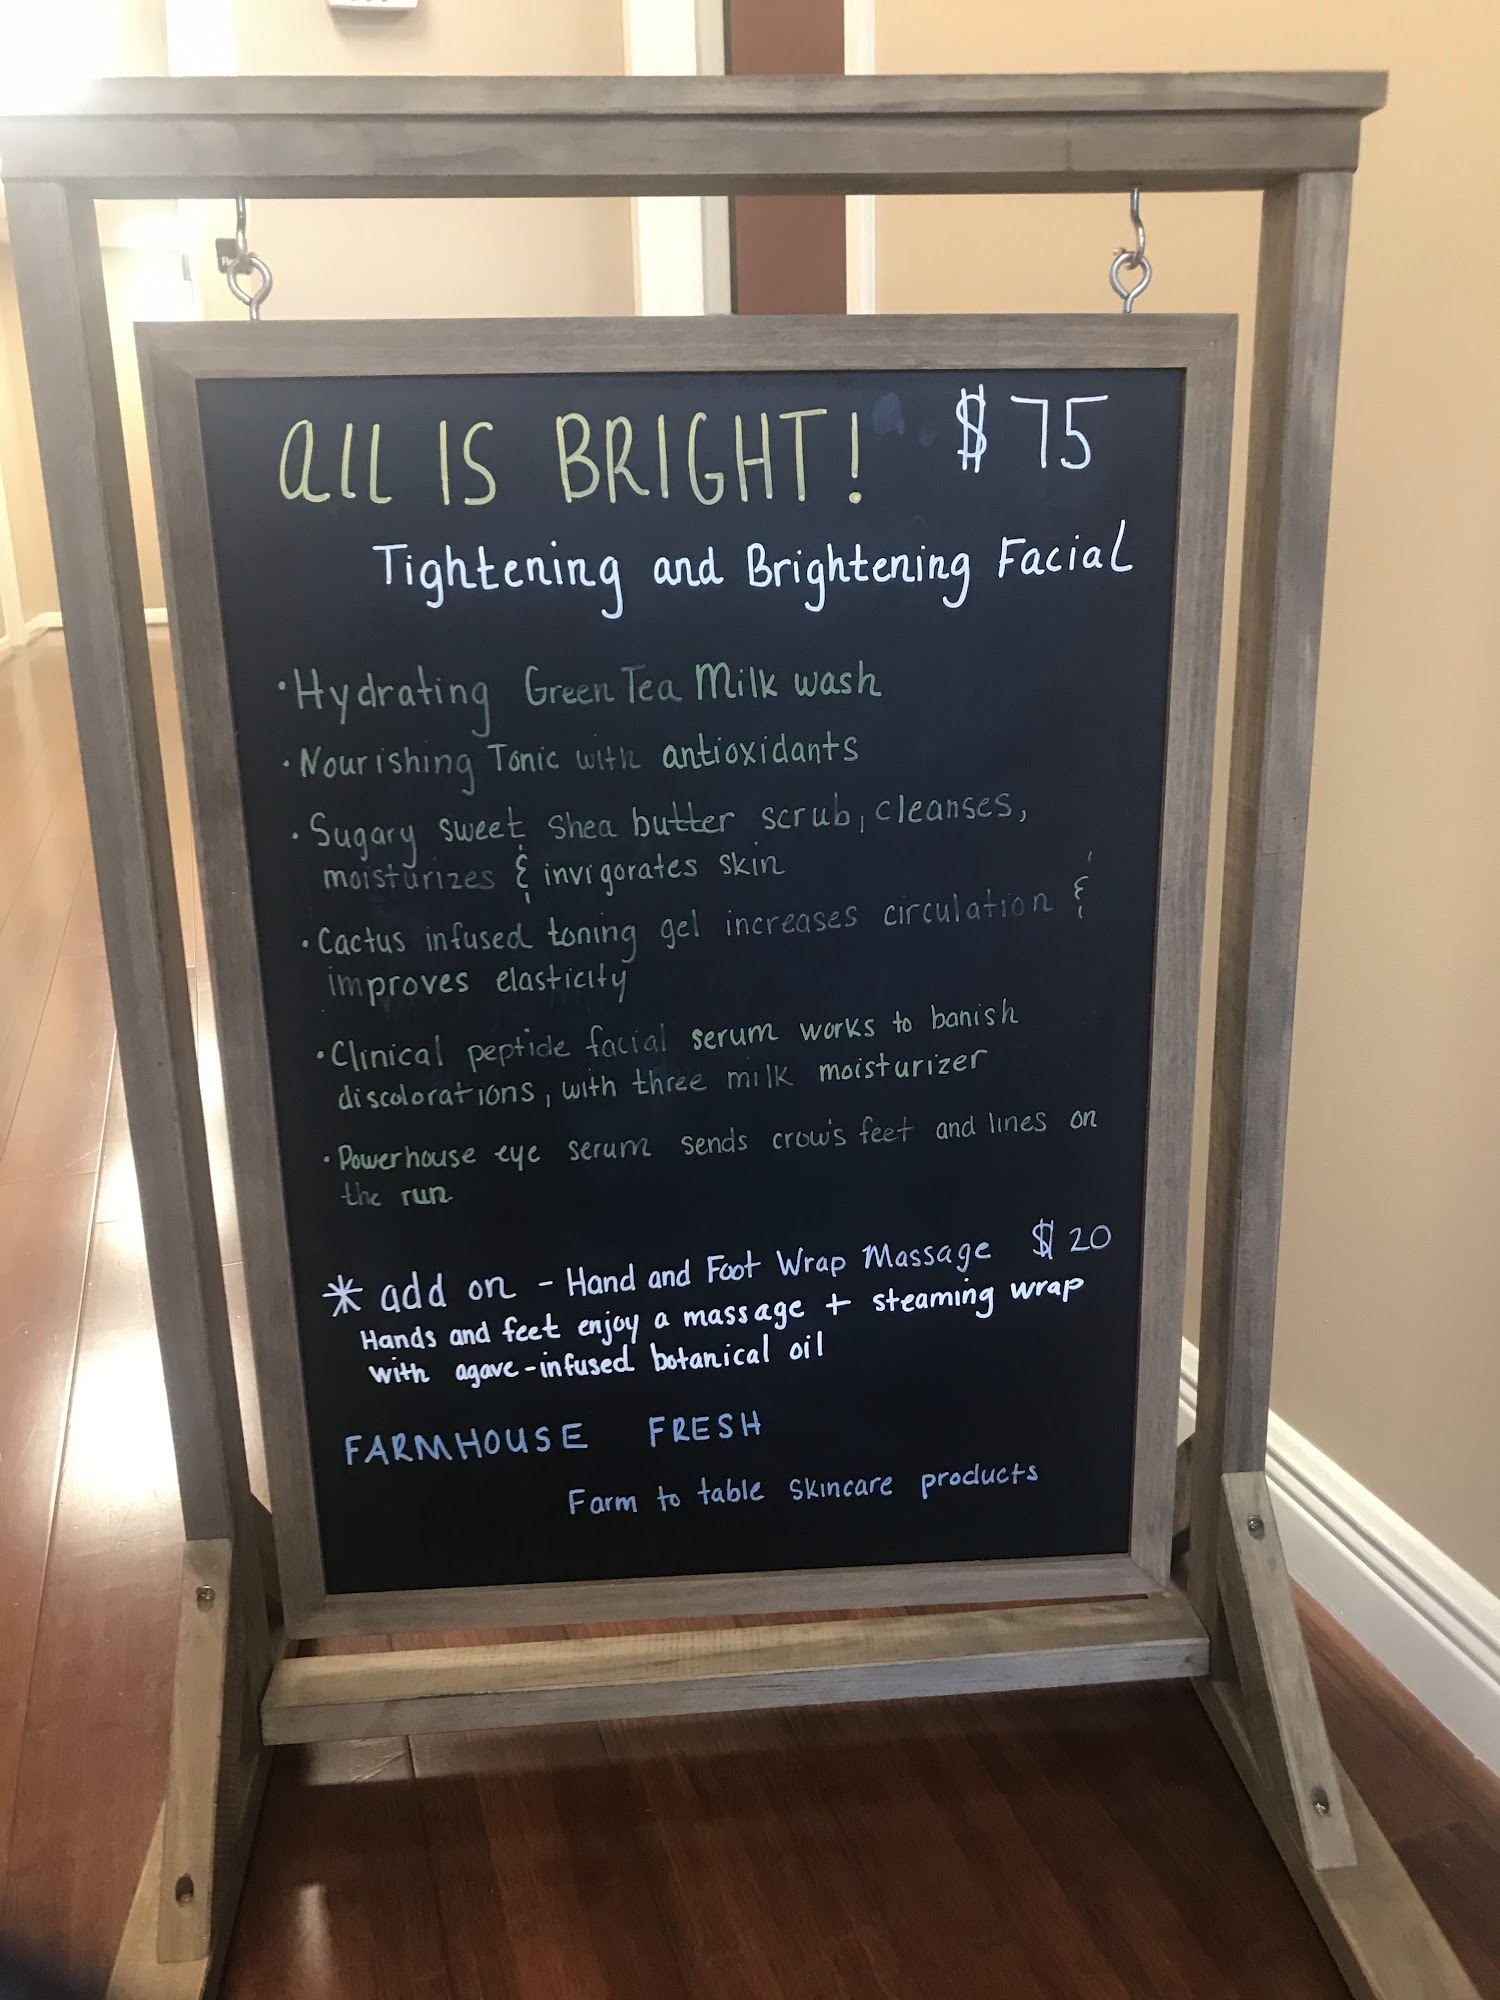 all IS BRIGHT! $75
Tightening and Brightening Facial
• Hydrating Green Tea Milk wash
• Nourishing Tonic with antioxidants
• Sugary sweet Shea butter scrub, cleanses,
moisturizes & invigorates skin
• Cactus infused toning gel increases circulation &
improves elasticity
• Clinical peptide facial serum works to banish
discolorations, with three milk moisturizer
• Powerhouse eye serum sends crow's feet and lines on
the run.
* add on - Hand and Foot Wrap Massage $20
Hands and feet enjoy a massage + steaming wrap
with agave-infused botanical oil
FARMHOUSE FRESH
Farm to table skincare products